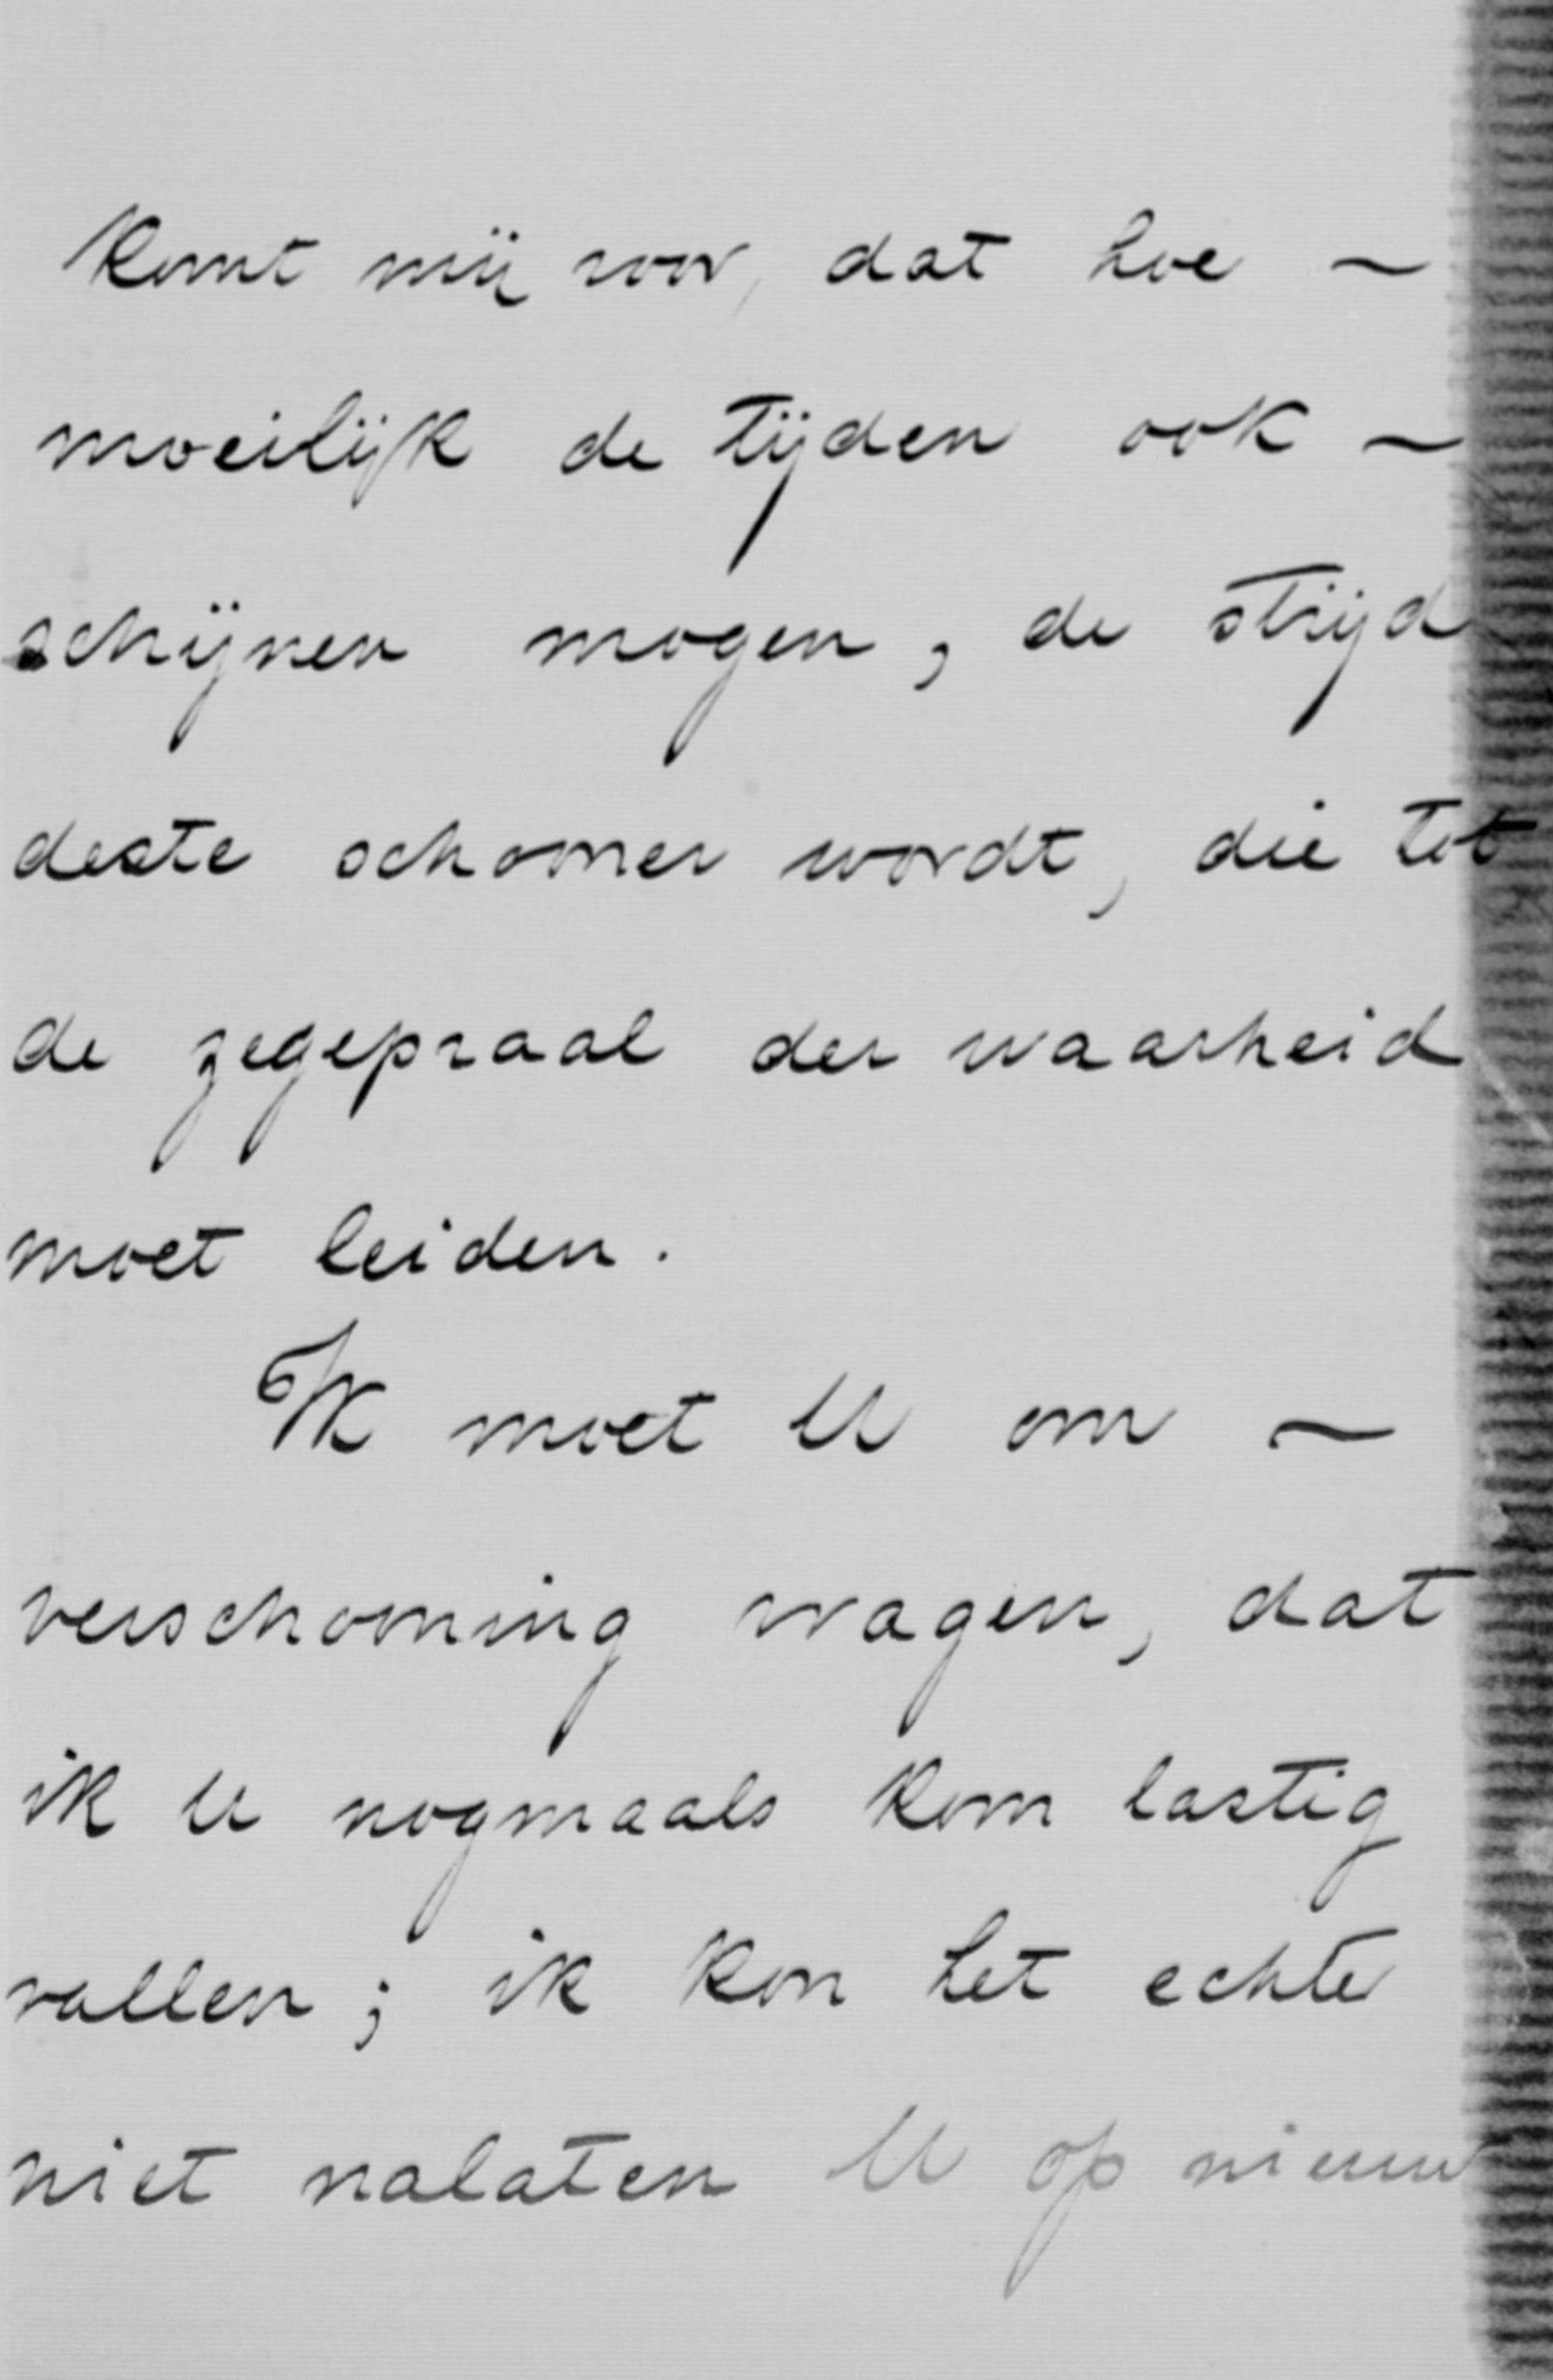 komt mij voor, dat hoe ~
moeilijk de tijden ook ~
schijnen mogen, de strijd
deste schooner wordt, die tot
de zegepraal der waarheid
moet leiden.
Ik moet U om ~
verschooning vragen, dat
ik U nogmaals kom lastig
vallen; ik kon het echter
niet nalaten U op nieuw